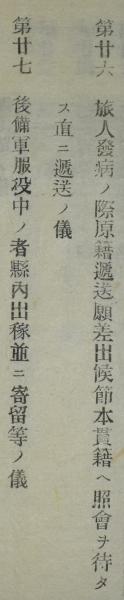 第廿六 旅人發病ノ際原籍遞送願差出候節本貫籍ヘ照會ヲ待タ
ス直ニ遞送ノ儀
第廿七 後備軍服役中ノ者縣內出稼並ニ寄留等ノ儀